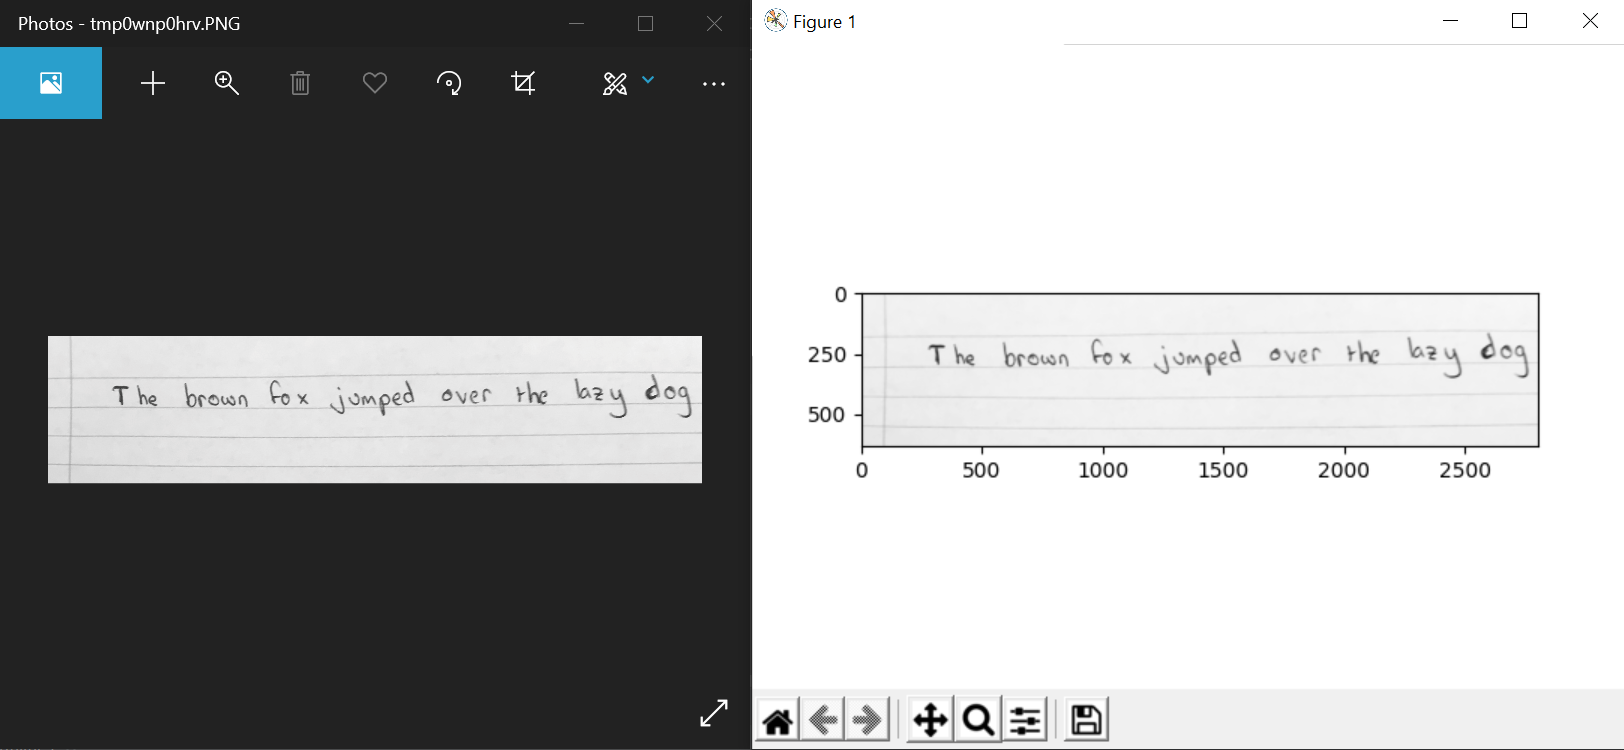 Photos - tmp0wnp0hrv.PNG
The brown fox jumped over the lazy dog
Figure 1
0
250
500
The brown fox jumped over the lazy dog
0 500 1000 1500 2000 2500